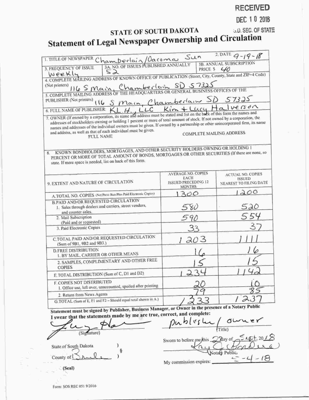 RECEIVED
DEC 10 2018
S.D. SEC. OF STATE
STATE OF SOUTH DAKOTA
Statement of Legal Newspaper Ownership and Circulation
1. TITLE OF NEWSPAPER Chamberlain/Oacoma Sun 2. DATE 9-19-18
3. FREQUENCY OF ISSUE Weekly 3A. NO. OF ISSUES PUBLISHED ANNUALLY 52 3B. ANNUAL SUBSCRIPTION PRICE $ 40
4. COMPLETE MAILING ADDRESS OF KNOWN OFFICE OF PUBLICATION (Street, City, County, State and ZIP+4 Code)
(Not printers) 116 S Main, Chamberlain SD 57325
5. COMPLETE MAILING ADDRESS OF THE HEADQUARTERS OR GENERAL BUSINESS OFFICES OF THE
PUBLISHER (Not printers) 116 S Main, Chamberlain SD 57325
6. FULL NAME OF PUBLISHER: KLH, LLC Kim & Lucy Halverson
7. OWNER (If owned by a corporation, its name and address must be stated and list on the back of this form the names and
addresses of stockholders owning or holding 1 percent or more of total amount of stock. If not owned by a corporation, the
names and addresses of the individual owners must be given. If owned by a partnership or other unincorporated firm, its name
and address, as well as that of each individual must be given.
FULL NAME COMPLETE MAILING ADDRESS
8. KNOWN BONDHOLDERS, MORTGAGES, AND OTHER SECURITY HOLDERS OWNING OR HOLDING 1
PERCENT OR MORE OF TOTAL AMOUNT OF BONDS, MORTGAGES OR OTHER SECURITIES (If there are none, so
state. If more space is needed, list on back of this form.
9. EXTENT AND NATURE OF CIRCULATION
AVERAGE NO. COPIES EACH ISSUED PRECEDING 12 MONTHS
ACTUAL NO. COPIES ISSUED NEAREST TO FILING DATE
A. TOTAL NO. COPIES 1200 1200
B. PAID AND/OR REQUESTED CIRCULATION
1. Sales through dealers and carriers, street vendors, and counter sales. 580 520
2. Mail Subscription (Paid and/or requested) 590 554
3. Paid Electronic Copies 33 37
C. TOTAL PAID AND/OR REQUESTED CIRCULATION
(Sum of 9B1, 9B2 and 9B3.) 1203 1111
D. FREE DISTRIBUTION
1. BY MAIL, CARRIER OR OTHER MEANS 16 16
2. SAMPLES, COMPLIMENTARY AND OTHER FREE COPIES 15 15
E. TOTAL DISTRIBUTION (Sum of C, D1 and D2) 1234 1142
F. COPIES NOT DISTRIBUTED
1. Office use, left over, unaccounted, spoiled after printing 20 10
2. Return from News Agents 79 85
G. TOTAL (Sum of E, F1 and F2 - Should equal total shown in A.) 1333 1237
Statement must be signed by Publisher, Business Manager, or Owner in the presence of a Notary Public
I swear that the statements made by me are true, correct, and complete:
publisher / owner
(Signature) (Title)
State of South Dakota )
County of Brule )
(Seal)
Notary Public
My commission expires
Form: SOS REC 051 9/2016